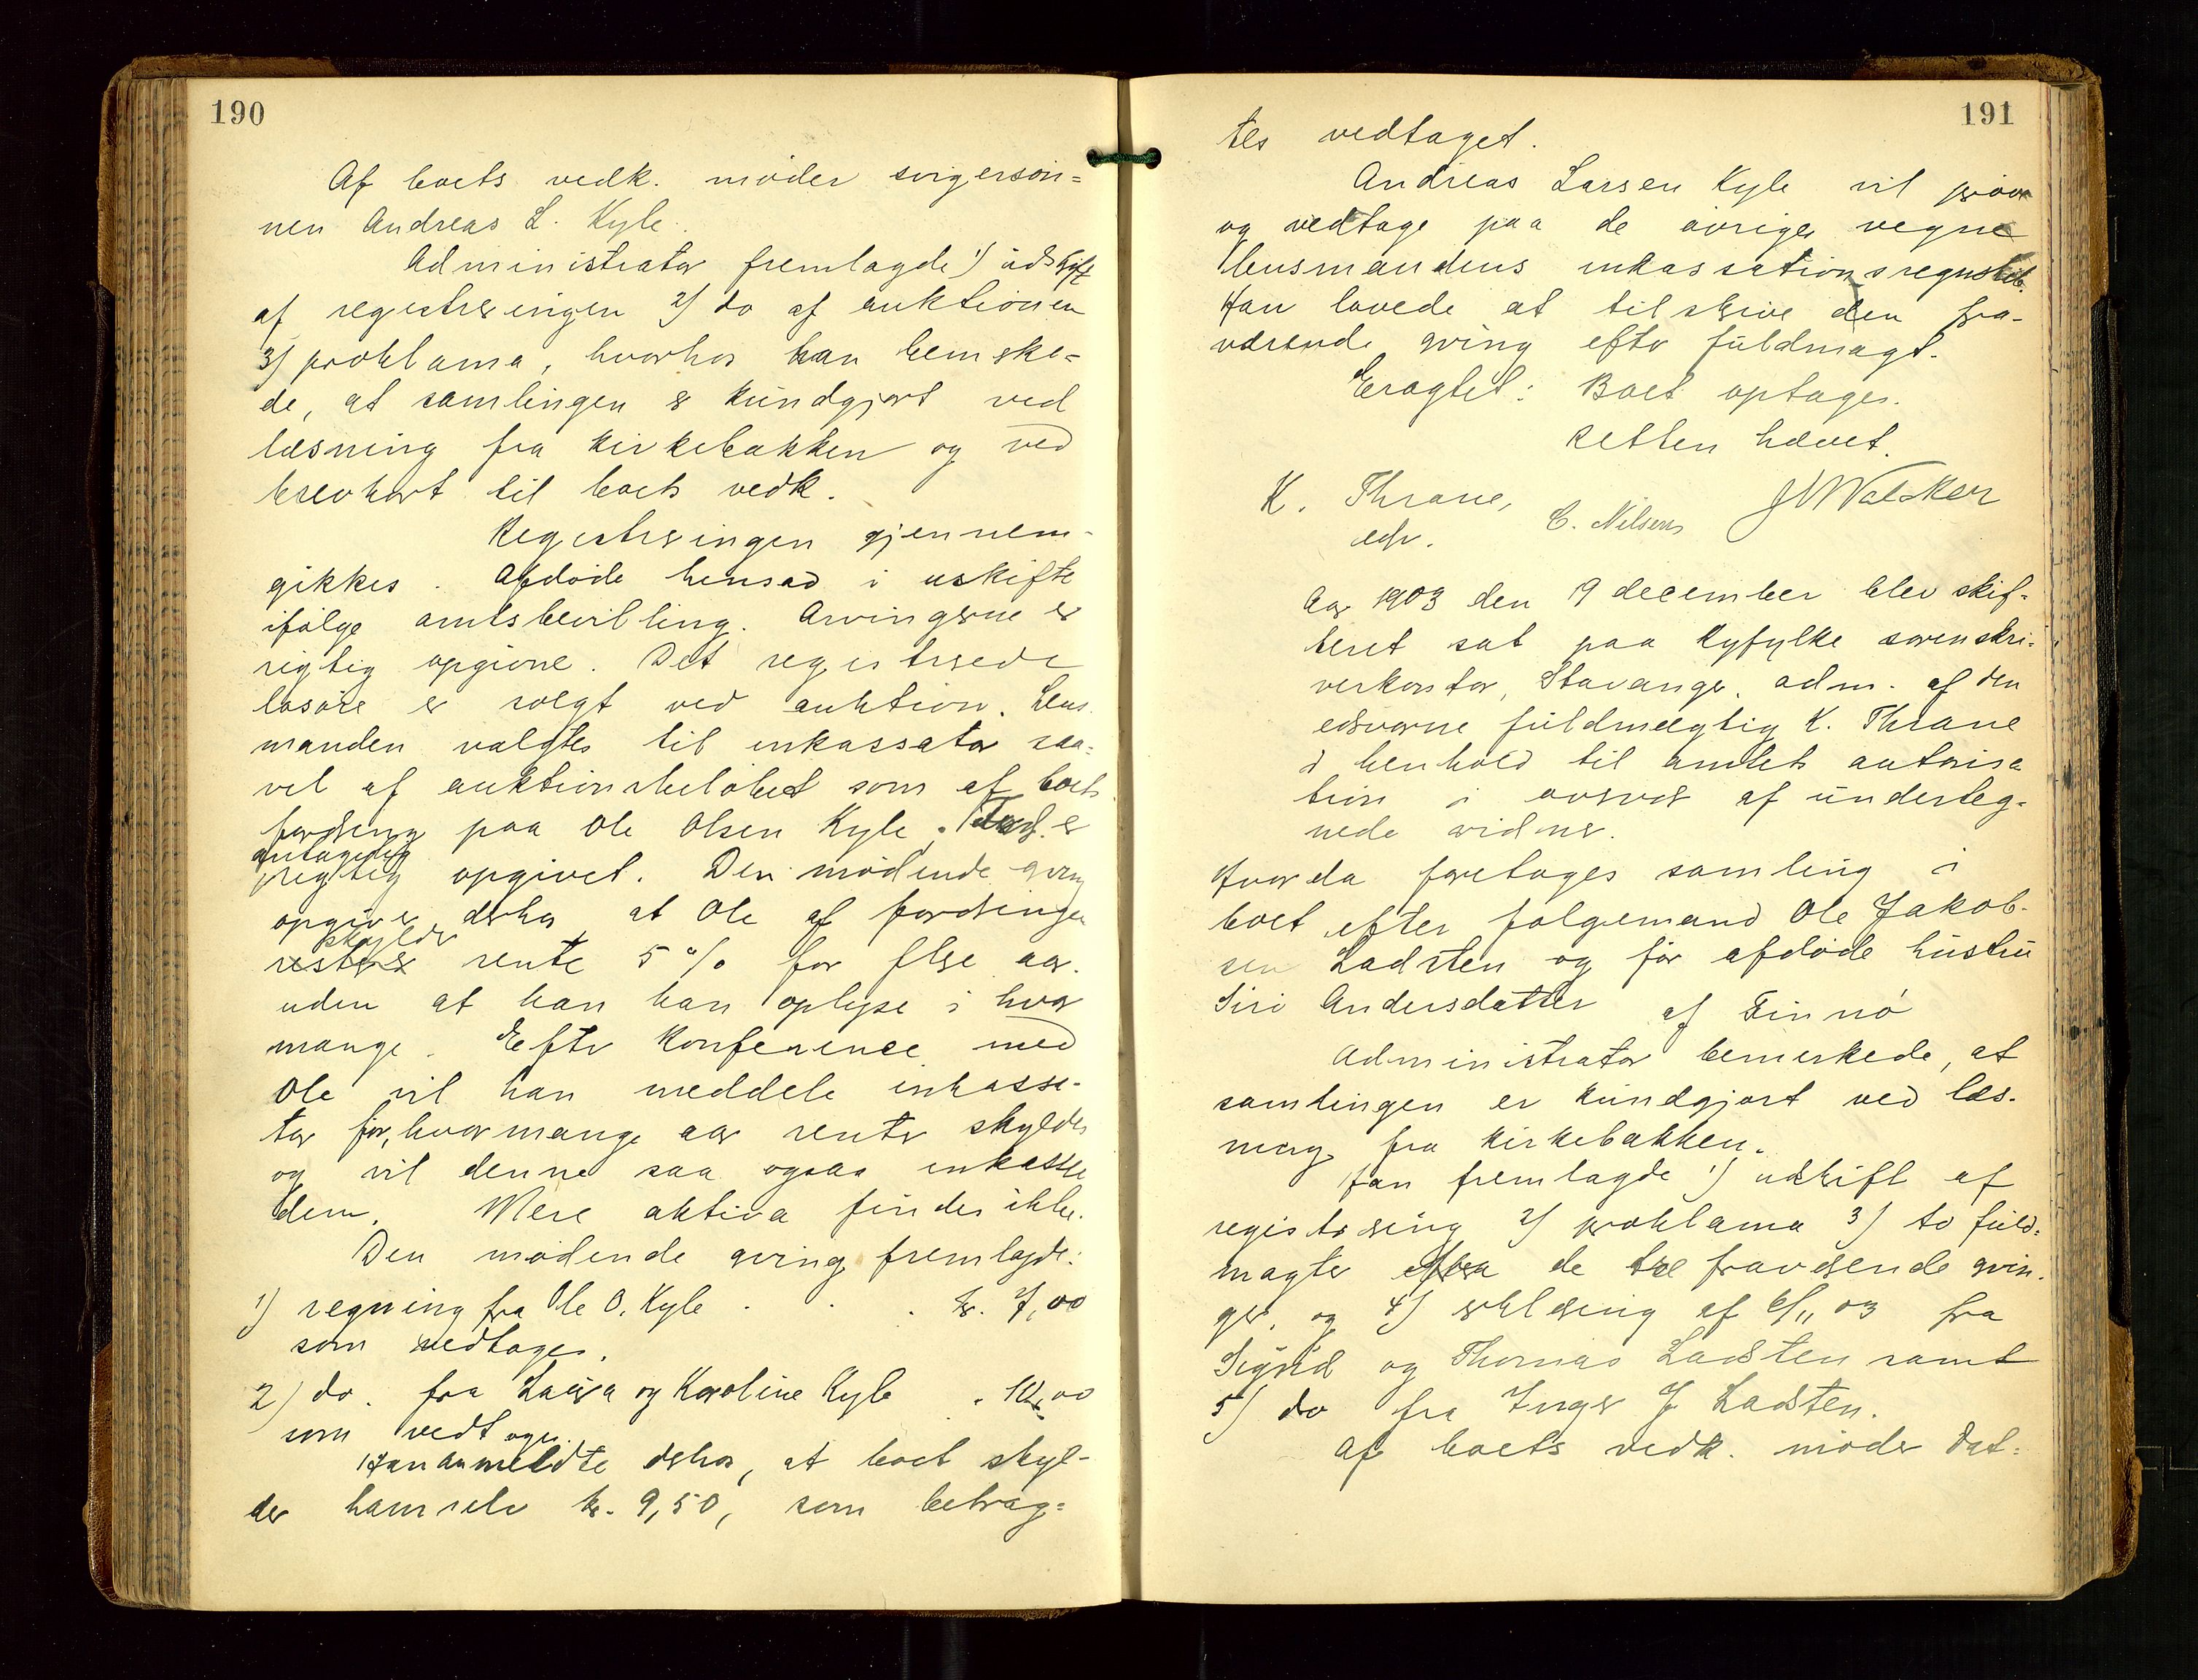 190
Af boets vedk. møder svigersøn=
nen Andreas L. Kyle.
Administrator fremlagde 1) udskrift
af registreringen 2) do af auktionen
3) proklama, hvorhos han bemerke=
de, at samlingen er kundgjort ved
læsning fra kirkebakken og ved
brevkort til boets vedk.
Registreringen gjennem-
gikkes. Afdøde hensad i uskifte
ifølge amtsbevilling. Arvingerne er
rigtig opgivne. Det registrerede
løsøre er solgt ved auktion. Lens
manden valgtes til inkassator saa=
vel af auktionsbeløbet som af boets
fordring paa Ole Olsen Kyle. er
antagelig
rigtig opgivet. Den mødende arving
opgiver derhos at Ole af fordringen
skylder
rester rente 5 % for flere aar.
uden at han kan oplyse i hvor
mange. Efter konference med
Ole vil han meddele inkassa-
tor for, hvor mange aar renter skyldes
og vil denne saa ogsaa inkassere
dem. Mere aktiva findes ikke.
Den mødende arving fremlagde:
1) regning fra Ole O. Kyle . . . kr. 7,00
som vedtages.
2) do. fra Laura og Karoline Kyle . 10,00
som vedtoges.
Han anmeldte derhos, at boet skyl-
der ham selv kr. 9,50, som betrag=
191
tes vedtaget.
Andreas Larsen Kyle vil prøve
og vedtage paa de øvriges vegne
lensmandens inkassationsregnskab.
Han lovede at tilskrive den fra-
værende arving efter fuldmagt.
Eragtet: Boet optages.
Retten hævet.
K. Thrane,
edv.
C. Nilsen
Aar 1903 den 19 december blev skif-
teret sat paa Ryfylke sorenskri-
verkontor, Stavanger, adm. af den
edsvorne fuldmægtig K. Thrane
i henhold til amtets autorisa
tion i overvær af underteg-
nede vidner.
Hvor da foretages samling i
boet efter følgemand Ole Jakob-
sen Ladsten og før afdøde hustru
Siri Andersdatter af Finnø
Administrator bemerkede, at
samlingen er kundgjort ved læs-
ning fra kirkebakken.
Han fremlagde 1) udskrift af
registrering 2) proklama 3) to fuld=
magter fra de tre fraværende arvin-
ger, og 4) erklæring af 6/11 03 fra
Sigrid og Thomas Ladsten samt
5) do fra Inger J Ladsten.
Af boets vedk. møder dat=